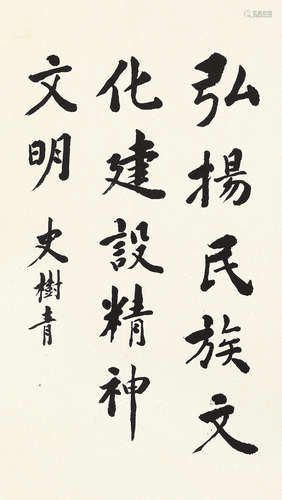 弘揚民族文
化建設精神
文明
史樹青